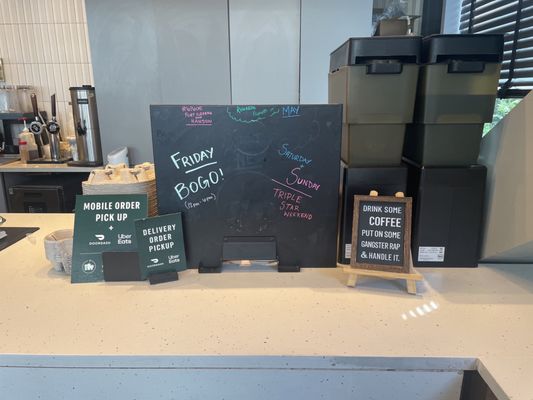 MAY
FRIDAY
BOGO!
SATURDAY
SUNDAY
TRIPLE
STAR
WEEKEND
MOBILE ORDER
PICK UP
DOORDASH
Uber
Eats
DELIVERY
ORDER
PICKUP
DOORDASH
Uber
Eats
DRINK SOME
COFFEE
PUT ON SOME
GANGSTER RAP
& HANDLE IT.